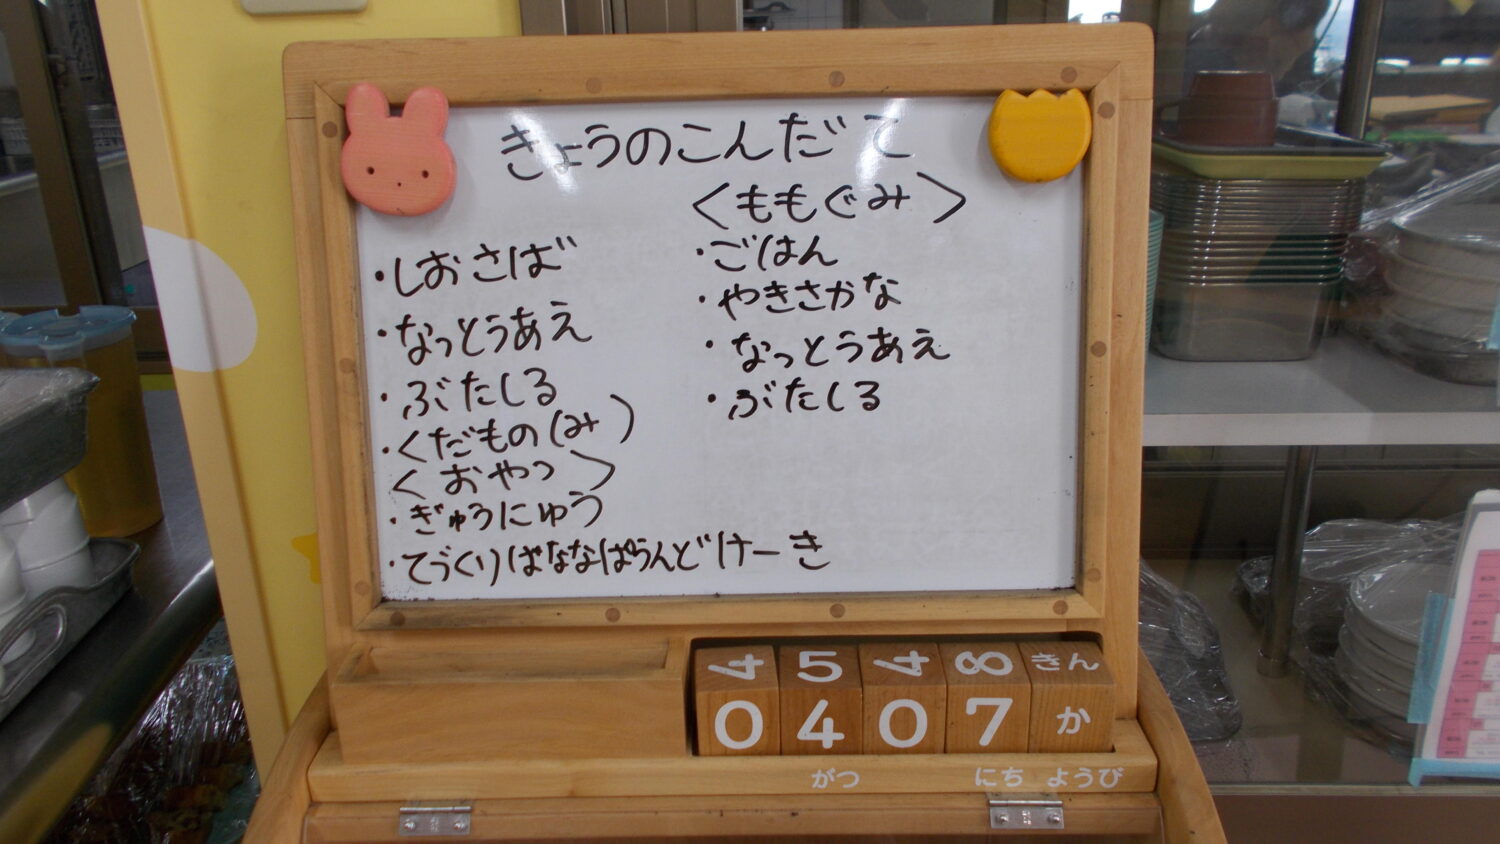 きょうのこんだて
・しおさば
・なっとうあえ
・ぶたしる
・くだもの(み)
<おやつ>
・ぎゅうにゅう
・てづくりばななぱうんどけーき
<ももぐみ>
・ごはん
・やきさかな
・なっとうあえ
・ぶたしる
4 5 4 8 きん
0 4 0 7 か
がつ にち ようび